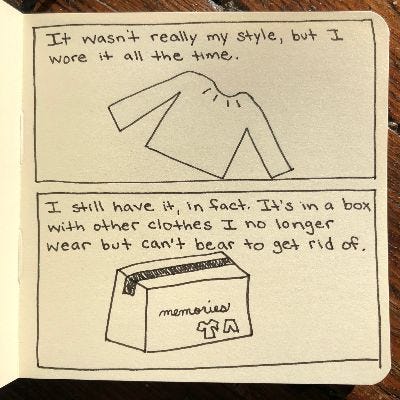 It wasn't really my style, but I
wore it all the time.
I still have it, in fact. It's in a box
with other clothes I no longer
wear but can't bear to get rid of.
memories